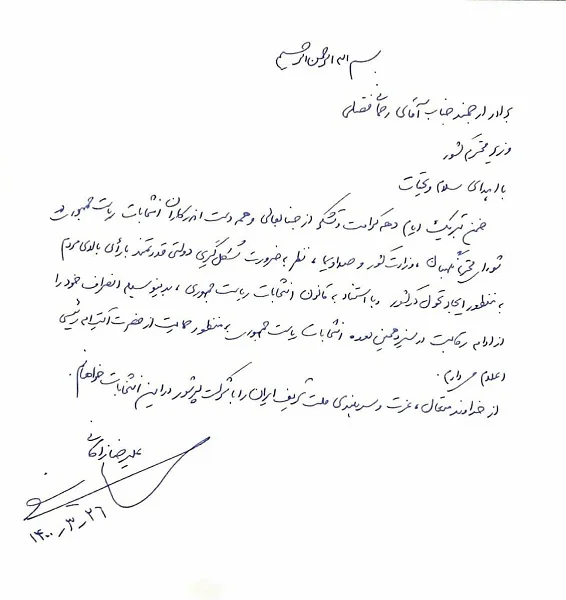 بسم الله الرحمن الرحیم
برادر ارجمند جناب آقای رحمانی فضلی
وزیر محترم کشور
با اهدای سلام و تحیات
ضمن تبریک ایام دهه کرامت و تشکر از جنابعالی و همه دست اندرکاران انتخابات ریاست جمهوری در
شورای محترم نگهبان، وزارت کشور و صداوسیما، نظر به ضرورت شکل گیری دولتی قدرتمند با رأی بالای مردم
به منظور ایجاد تحول در کشور و با استناد به قانون انتخابات ریاست جمهوری، بدینوسیله انصراف خود را
از ادامه رقابت در سیزدهمین دوره انتخابات ریاست جمهوری به منظور حمایت از حضرت آیت اله رئیسی
اعلام می دارم.
از خداوند متعال، عزت و سربلندی ملت شریف ایران را با شرکت پرشور در این انتخابات خواهانم.
علیرضا زاکانی
۱۴۰۰٫۳٫۲۶